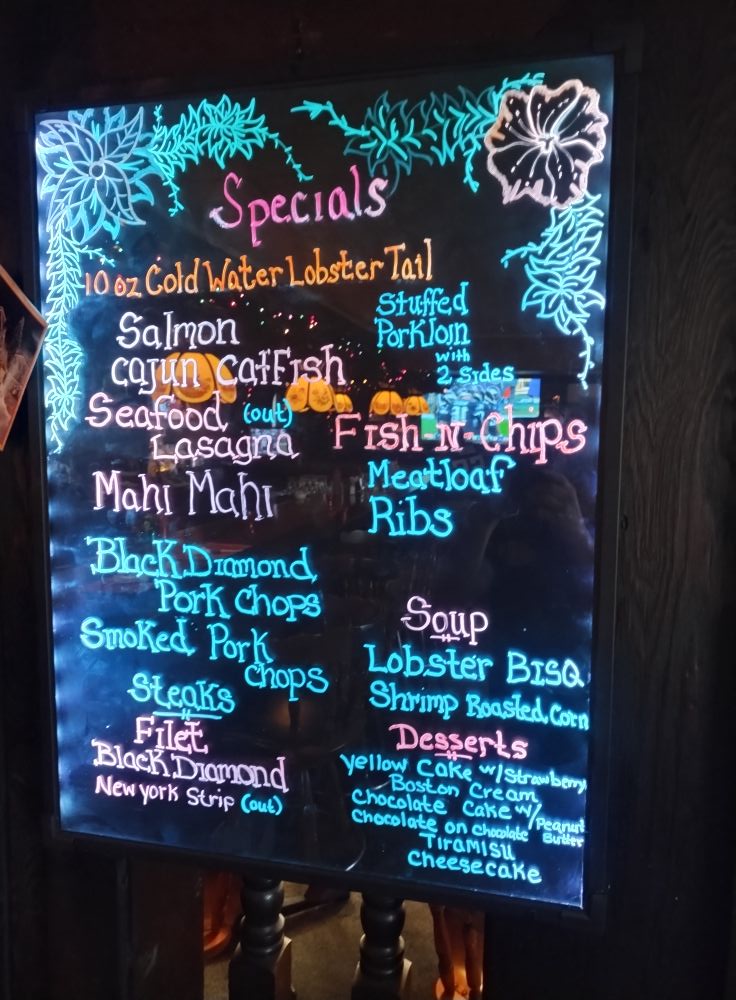 Specials
10 oz Cold Water Lobster Tail
Salmon
Cajun Catfish
Seafood (out)
Lasagna
Mahi Mahi
Black Diamond
Pork Chops
Smoked Pork
Chops
Steaks
Filet
Black Diamond
New York Strip (out)
Stuffed
Pork loin
with
2 Sides
Fish N-Chips
Meatloaf
Ribs
Soup
Lobster Bisq
Shrimp Roasted Corn
Desserts
Yellow Cake w/Strawberry
Boston Cream
Chocolate Cake w/Peanut Butter
Chocolate on Chocolate
Tiramisu
Cheesecake